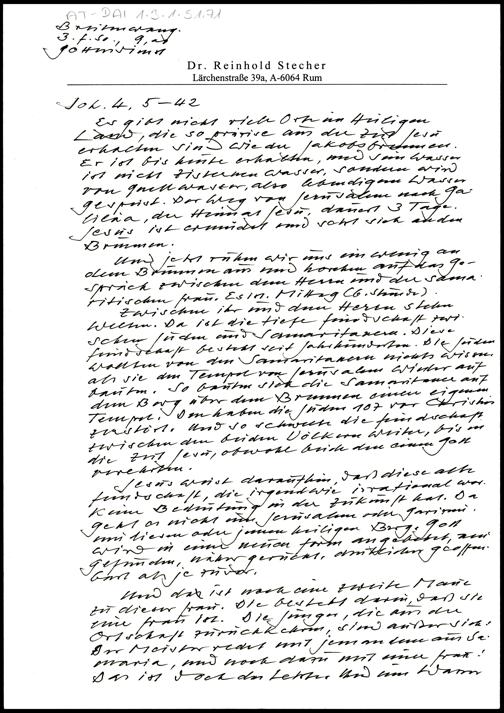 AT-DAI 1.3.1.5.1.71
Breitenwang
3. f. So., 9,00
Göttin
Dr. Reinhold Stecher
Lärchenstraße 39a, A-6064 Rum
Joh. 4, 5-42
Es gibt nicht viele Orte im Heiligen
Land, die so präzise aus der Zeit Jesu
erhalten sind wie der Jakobsbrunnen.
Er ist bis heute erhalten, und sein Wasser
ist nicht Zisternenwasser, sondern wird
von Quellwasser, also lebendigem Wasser
gespeist. Der Weg von Jerusalem nach Ga
liläa, der Heimat Jesu, dauert 3 Tage.
Jesus ist ermüdet und setzt sich an den
Brunnen.
Und jetzt ruhen wir uns ein wenig an
dem Brunnen aus und horchen auf das Ge-
spräch zwischen dem Herrn und der sama
ritischen Frau. Es ist Mittag (6. Stunde)
Zwischen ihr und dem Herrn stehen
Welten. Da ist die tiefe Feindschaft zwi-
schen Juden und Samaritanern. Diese
Feindschaft besteht seit Jahrhunderten. Die Juden
wollten von den Samaritanern nichts wissen
als sie den Tempel von Jerusalem wieder auf
bauten. So bauten sich die Samaritaner auf
dem Berg über dem Brunnen einen eigenen
Tempel. Den haben die Juden 107 vor Christus
zerstört. Und so schwelte die Feindschaft
zwischen den beiden Völkern weiter, bis in
die Zeit Jesu, obwohl beide den einen Gott
verehrten.
Jesus weist daraufhin, daß diese alte
Feindschaft, die irgendwie irrational war
keine Bedeutung in der Zukunft hat. Da
geht es nicht um Jerusalem oder Garizim
um diesen oder jenen heiligen Berg. Gott
wird in einer neuen Form angebetet, neu
gefunden, näher gerückt, deutlicher geoffen-
bart als je zuvor.
Und da ist noch eine zweite Mauer
zu dieser Frau. Die besteht darin, daß sie
eine Frau ist. Die Jünger, die aus der
Ortschaft zurückkehren, sind außer sich:
Der Meister redet mit jemandem aus Sa-
maria, und noch dazu mit einer Frau!
Das ist doch das Letzte. Und nun